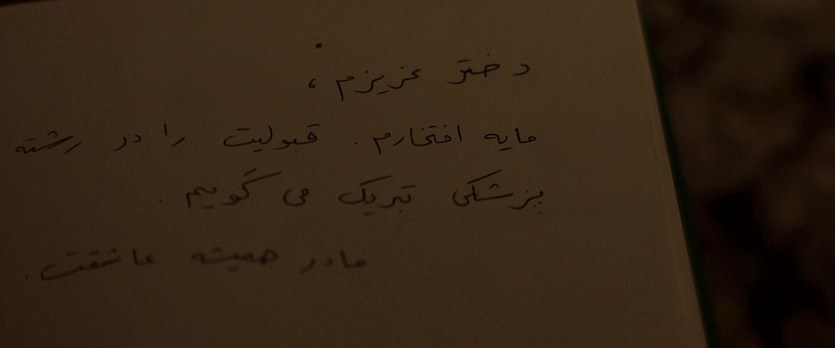 دختر عزیزم،
مایه افتخارم. قبولیت را در رشته
پزشکی تبریک می گویم.
مادر همیشه عاشقت.